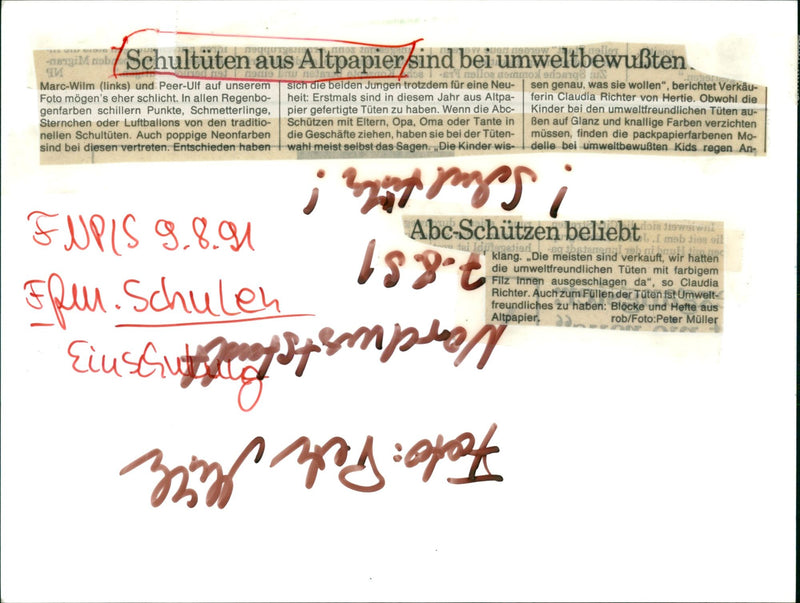 Schultüten aus Altpapier sind bei umweltbewußten
Marc-Wilm (links) und Peer-Ulf auf unserem
Foto mögen's eher schlicht. In allen Regenbo-
genfarben schillern Punkte, Schmetterlinge,
Sternchen oder Luftballons von den traditio-
nellen Schultüten. Auch poppige Neonfarben
sind bei diesen vertreten. Entschieden haben
sich die beiden Jungen trotzdem für eine Neu-
heit: Erstmals sind in diesem Jahr aus Altpa-
pier gefertigte Tüten zu haben. Wenn die Abc-
Schützen mit Eltern, Opa, Oma oder Tante in
die Geschäfte ziehen, haben sie bei der Tüten-
wahl meist selbst das Sagen. „Die Kinder wis-
sen genau, was sie wollen“, berichtet Verkäu-
ferin Claudia Richter von Hertie. Obwohl die
Kinder bei den umweltfreundlichen Tüten au-
ßen auf Glanz und knallige Farben verzichten
müssen, finden die packpapierfarbenen Mo-
delle bei umweltbewußten Kids regen An-
Abc-Schützen beliebt
klang. „Die meisten sind verkauft, wir hatten
die umweltfreundlichen Tüten mit farbigem
Filz innen ausgeschlagen da“, so Claudia
Richter. Auch zum Füllen der Tüten ist Umwelt-
freundliches zu haben: Blöcke und Hefte aus
Altpapier. rob/Foto:Peter Müller
FNP/S 9.8.91
Ffm. Schulen
Einschulung
Foto: Peter Müller
Nordweststadt
7.8.91
! Schultüten !